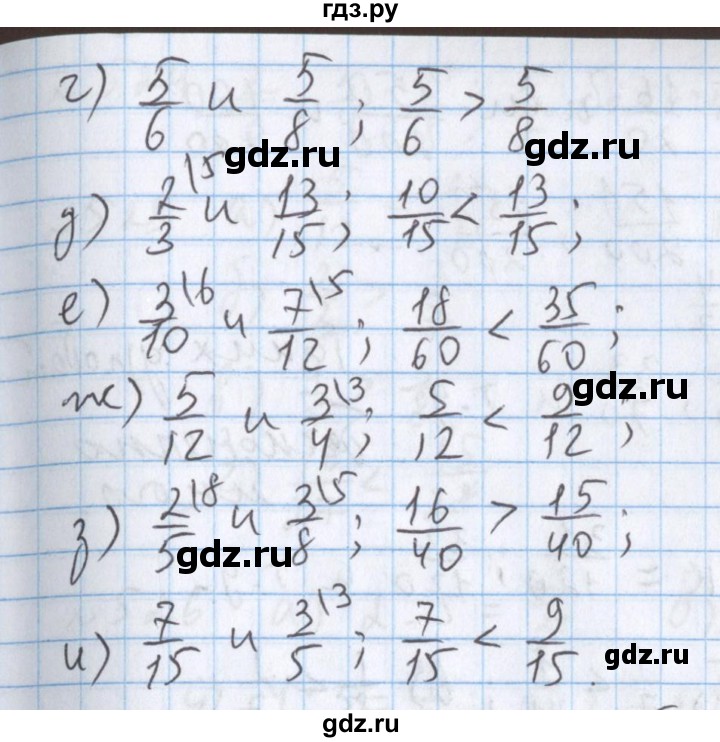 гдз.ру
г) 5/6 и 5/8; 5/6 > 5/8
gdz.ru gdz.ru
д) 2/3\5 и 13/15; 10/15 < 13/15;
е) 3/10\6 и 7/12\5; 18/60 < 35/60;
gdz.ru
ж) 5/12 и 3/4\3; 5/12 < 9/12;
з) 2/5\8 и 3/8\5; 16/40 > 15/40;
gdz.ru
и) 7/15 и 3/5\3; 7/15 < 9/15.
gdz.ru
gdz.ru